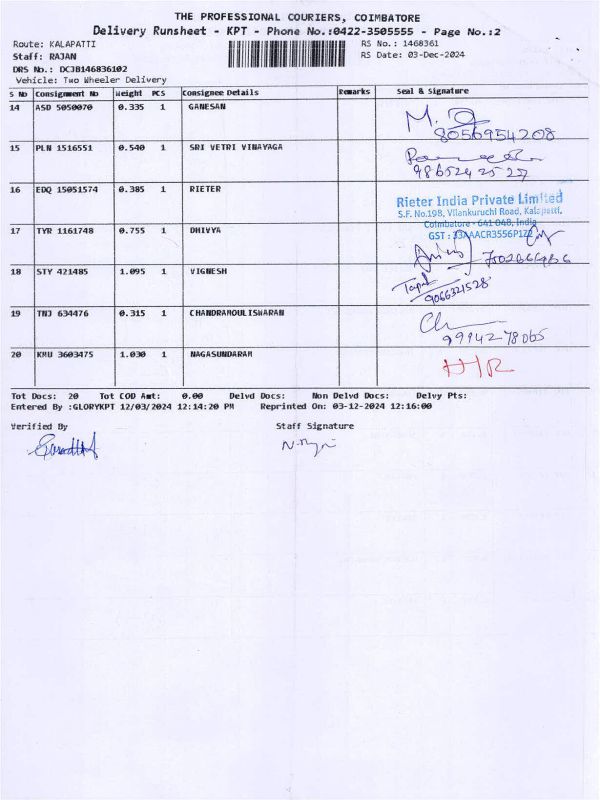 THE PROFESSIONAL COURIERS, COIMBATORE
Delivery Runsheet - KPT - Phone No.:0422-3505555 - Page No.:2
Route: KALAPATTI RS No.: 1468361
Staff: RAJAN RS Date: 03-Dec-2024
DRS No.: DCJB146836102
Vehicle: Two Wheeler Delivery
S No Consignment No Weight PCS Consignee Details Remarks Seal & Signature
14 ASD 5050070 0.335 1 GANESAN
8056954208
15 PLN 1516551 0.540 1 SRI VETRI VINAYAGA
16 EDQ 15051574 0.385 1 RIETER
Rieter India Private Limited
S.F. No.198, Vilankuruchi Road, Kalapatti,
Coimbatore - 641 048, India
GST : 33AAACR3556P1Z2
17 TYR 1161748 0.755 1 DHIVYA
18 STY 421485 1.095 1 VIGNESH
9066321528
19 TNJ 634476 0.315 1 CHANDRAMOULISWARAN
20 KMU 3603475 1.030 1 NAGASUNDARAM
HR
Tot Docs: 20 Tot COD Amt: 0.00 Delvd Docs: Non Delvd Docs: Delvy Pts:
Entered By :GLORYKPT 12/03/2024 12:14:20 PM Reprinted On: 03-12-2024 12:16:00
Verified By Staff Signature